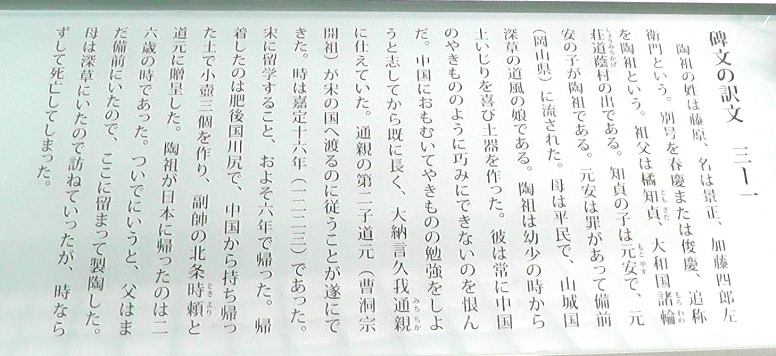 碑文の訳文　三ー一
陶祖の姓は藤原、名は景正、加藤四郎左
衛門という。別号を春慶または俊慶、追称
を陶祖という。祖父は橘知貞、大和国諸輪
荘道蔭村の出である。知貞の子は元安で、元
安の子が陶祖である。元安は罪があって備前
（岡山県）に流された。母は平民で、山城国
深草の道風の娘である。陶祖は幼少の時から
土いじりを喜び土器を作った。彼は常に中国
のやきもののように巧みにできないのを恨ん
だ。中国におもむいてやきものの勉強をしよ
うと志してから既に長く、大納言久我通親
に仕えていた。通親の第二子道元（曹洞宗
開祖）が宋の国へ渡るのに従うことが遂にで
きた。時は嘉定十六年（一二二三）であった。
宋に留学すること、およそ六年で帰った。帰
着したのは肥後国川尻で、中国から持ち帰っ
た土で小壺三個を作り、副帥の北条時頼と
道元に贈呈した。陶祖が日本に帰ったのは二
六歳の時であった。ついでにいうと、父はま
だ備前にいたので、ここに留まって製陶した。
母は深草にいたので訪ねていったが、時なら
ずして死亡してしまった。